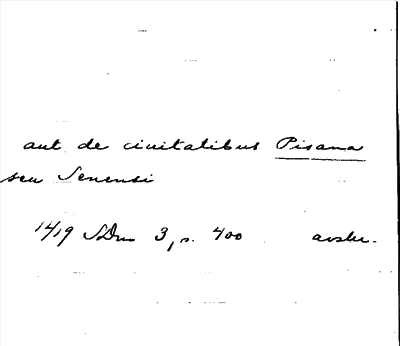 aut de ciuitatibus Pisana
seu Senensi
1419 SDm 3, s. 400 avskr.